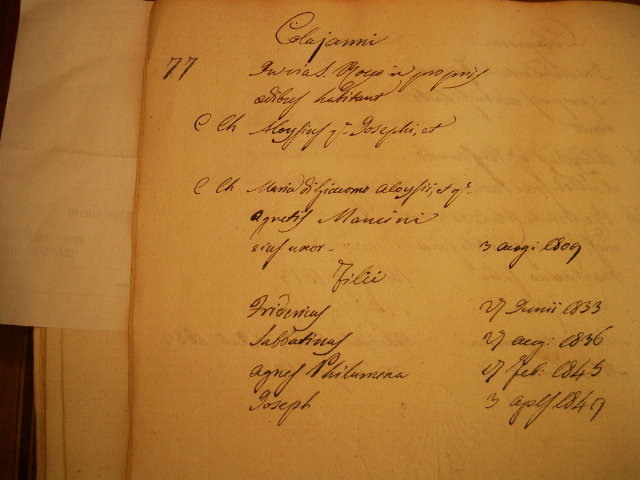 Colajanni
77 In via S. Rocco in propriis
ædibus habitant
C Ch Aloysius q.m Josephi, et
C Ch Maria di Giacomo Aloysii, et q.m
Agnetis Mancini
eius uxor. 3 aug: 1809
Filii
Fridericus 27 Junii 1833
Sabbatinus 27 aug: 1836
Agnes Philumena 17 feb: 1845
Joseph 3 aplis 1849